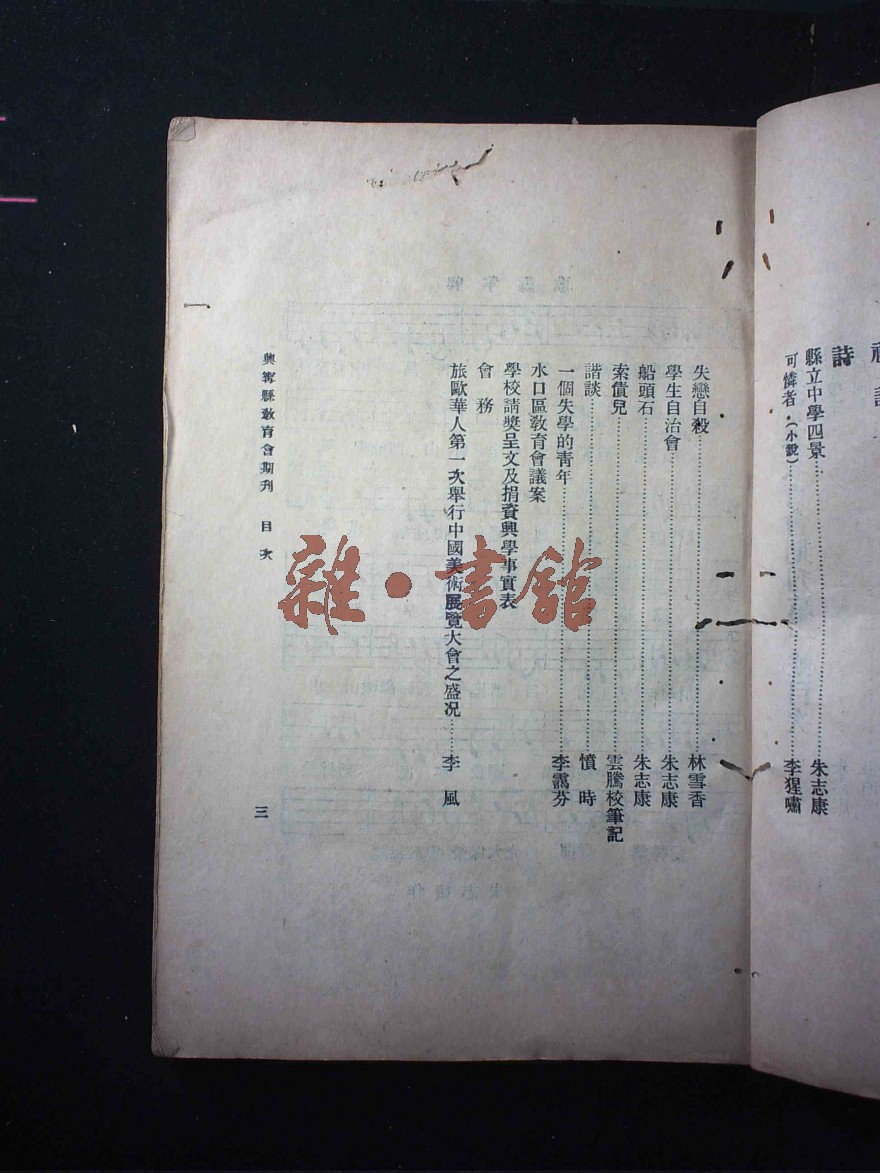 詩
縣立中學四景……朱志康
可憐者（小說）……李猩嘯
失戀自殺……林雪香
學生自治會……朱志康
船頭石……朱志康
索債兒……雲騰校筆記
諧談……憤時
一個失學的靑年……李靄芬
水口區敎育會議案
學校請奬呈文及捐資興學事實表
會務
旅歐華人第一次舉行中國美術展覽大會之盛况……李風
興寧縣敎育會期刋 目次
三
雜·書館